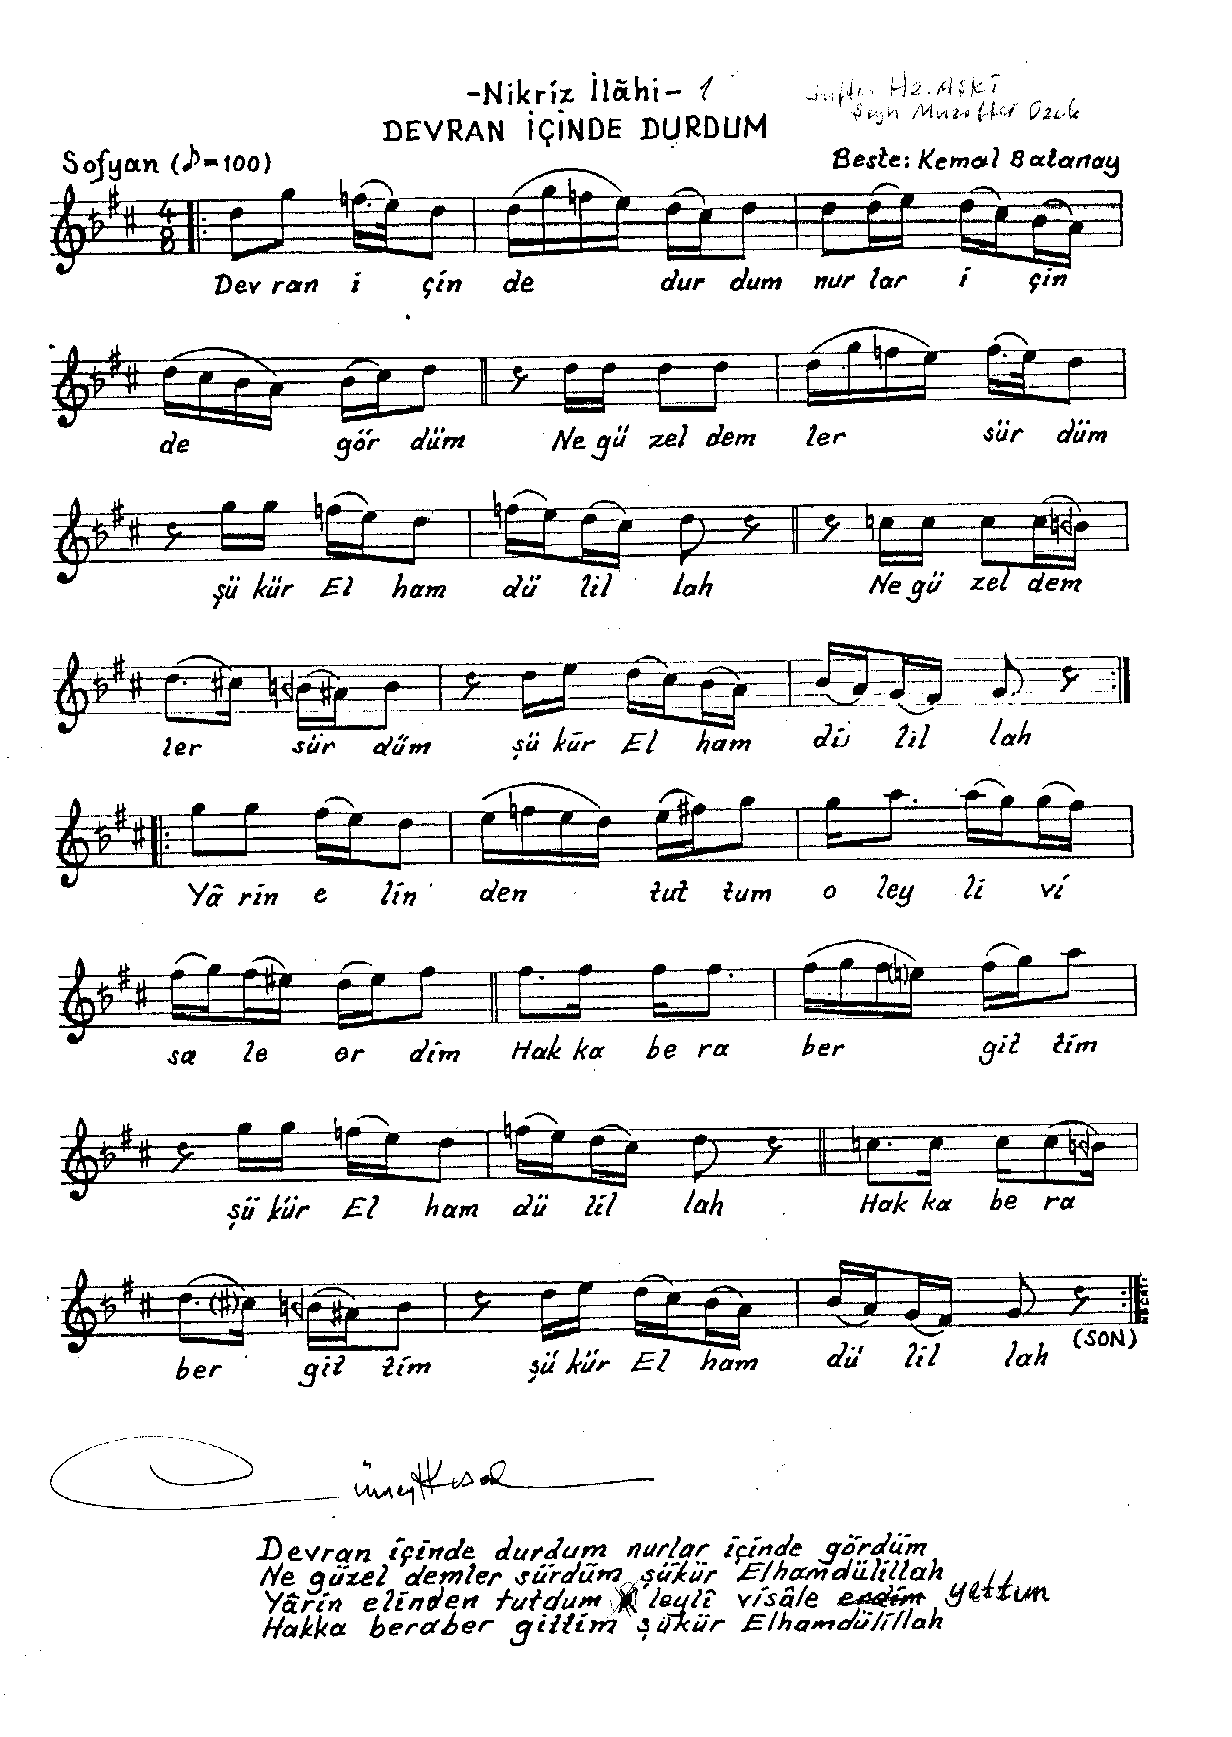 -Nikriz İlâhi- 1
Hz. Aşkî
Muzaffer Ozak
DEVRAN İÇİNDE DURDUM
Sofyan (♪=100)
Beste: Kemal Batanay
4
8
Dev ran i çin de dur dum nur lar i çin
de gör düm Ne gü zel dem ler sür düm
şü kür El ham dü lil lah Ne gü zel dem
ler sür düm şü kür El ham dü lil lah
Yâ rin e lin den tut tum o ley li vi
sa le er dim Hak ka be ra ber git tim
şü kür El ham dü lil lah Hak ka be ra
ber git tim şü kür El ham dü lil lah
(SON)
Devran içinde durdum nurlar içinde gördüm
Ne güzel demler sürdüm şükür Elhamdülillah
Yârin elinden tutdum leylî visâle erdim yettim
Hakka beraber gittim şükür Elhamdülillah